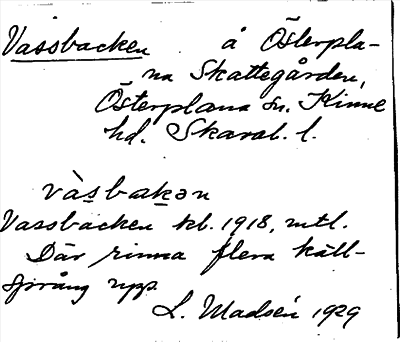 Vassbacken å Österpla-
na Skattegården,
Österplana sn. Kinne
hd. Skarab. l.
vàsbakən
Vassbacken kb. 1918, mtl.
Där rinna flera käll-
språng upp.
L. Madsén 1929